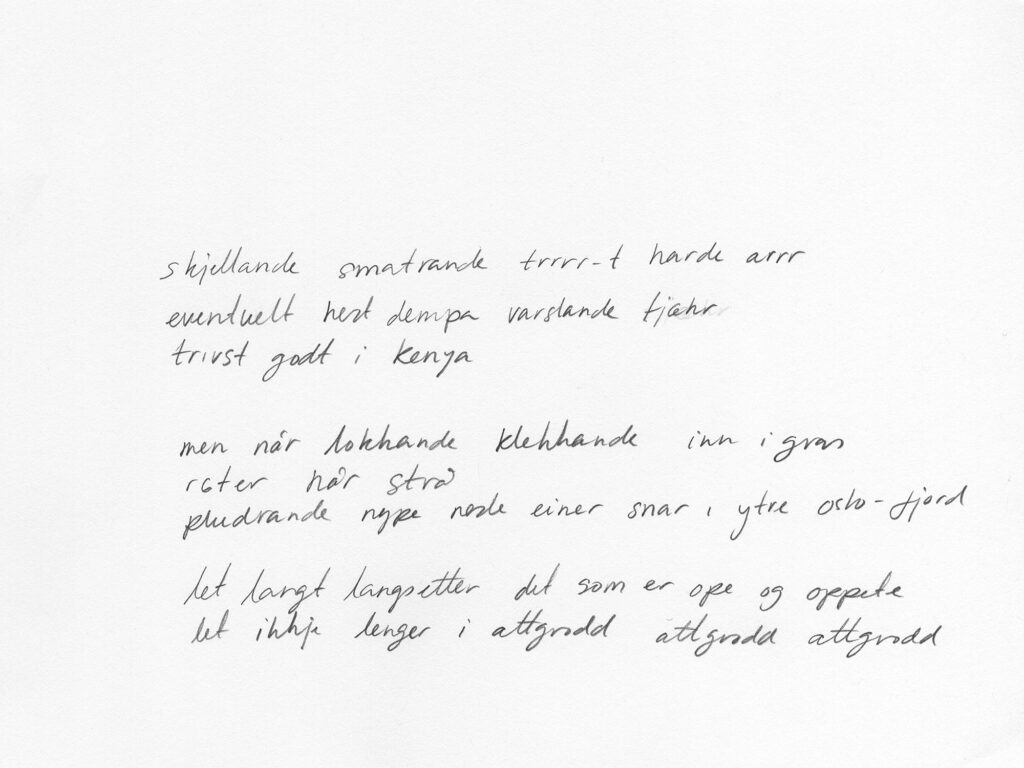 skjellande smatrande trrrr-t harde arrr
eventuelt hest dempa varslande tjæhr
trivst godt i kenya
men når lokkande klekkande inn i gras
røter hår strå
pludrande nype nesle einer snar i ytre oslo-fjord
let langt langsetter det som er ope og oppete
let ikkje lenger i attgrodd attgrodd attgrodd